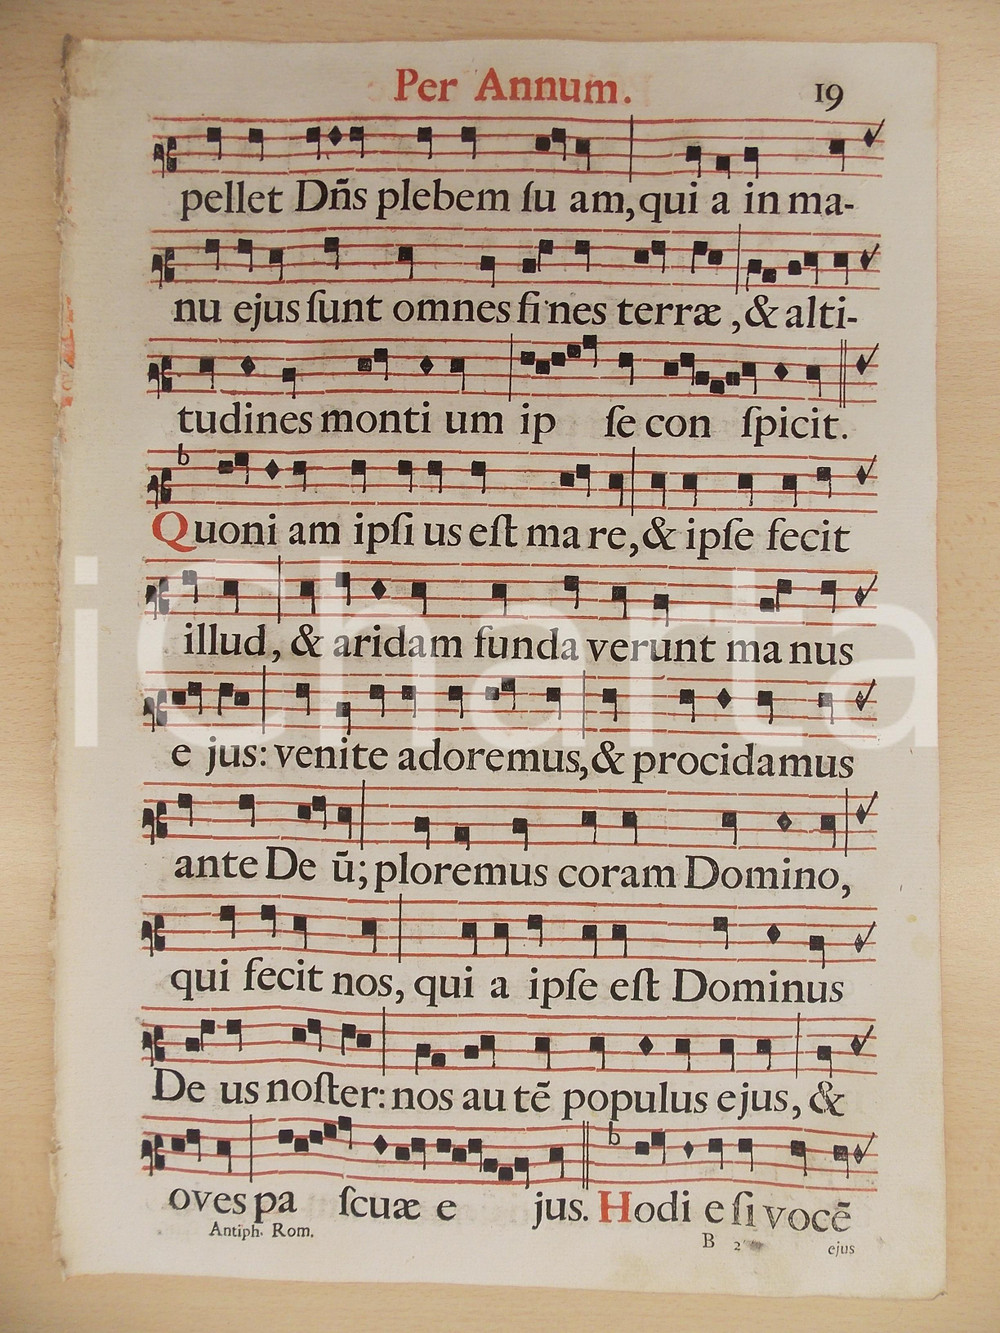 Per Annum. 19
pellet Dñs plebem ſu am, qui a in ma-
nu ejus ſunt omnes fi nes terræ, & alti-
tudines monti um ip ſe con ſpicit.
b
Quoni am ipſi us eſt ma re, & ipſe fecit
illud, & aridam funda verunt ma nus
e jus: venite adoremus, & procidamus
ante De ũ; ploremus coram Domino,
qui fecit nos, qui a ipſe eſt Dominus
De us noſter: nos au tẽ populus ejus, &
b
oves pa ſcuæ e jus. Hodi e ſi vocẽ
Antiph. Rom. B 2 ejus
iCharta